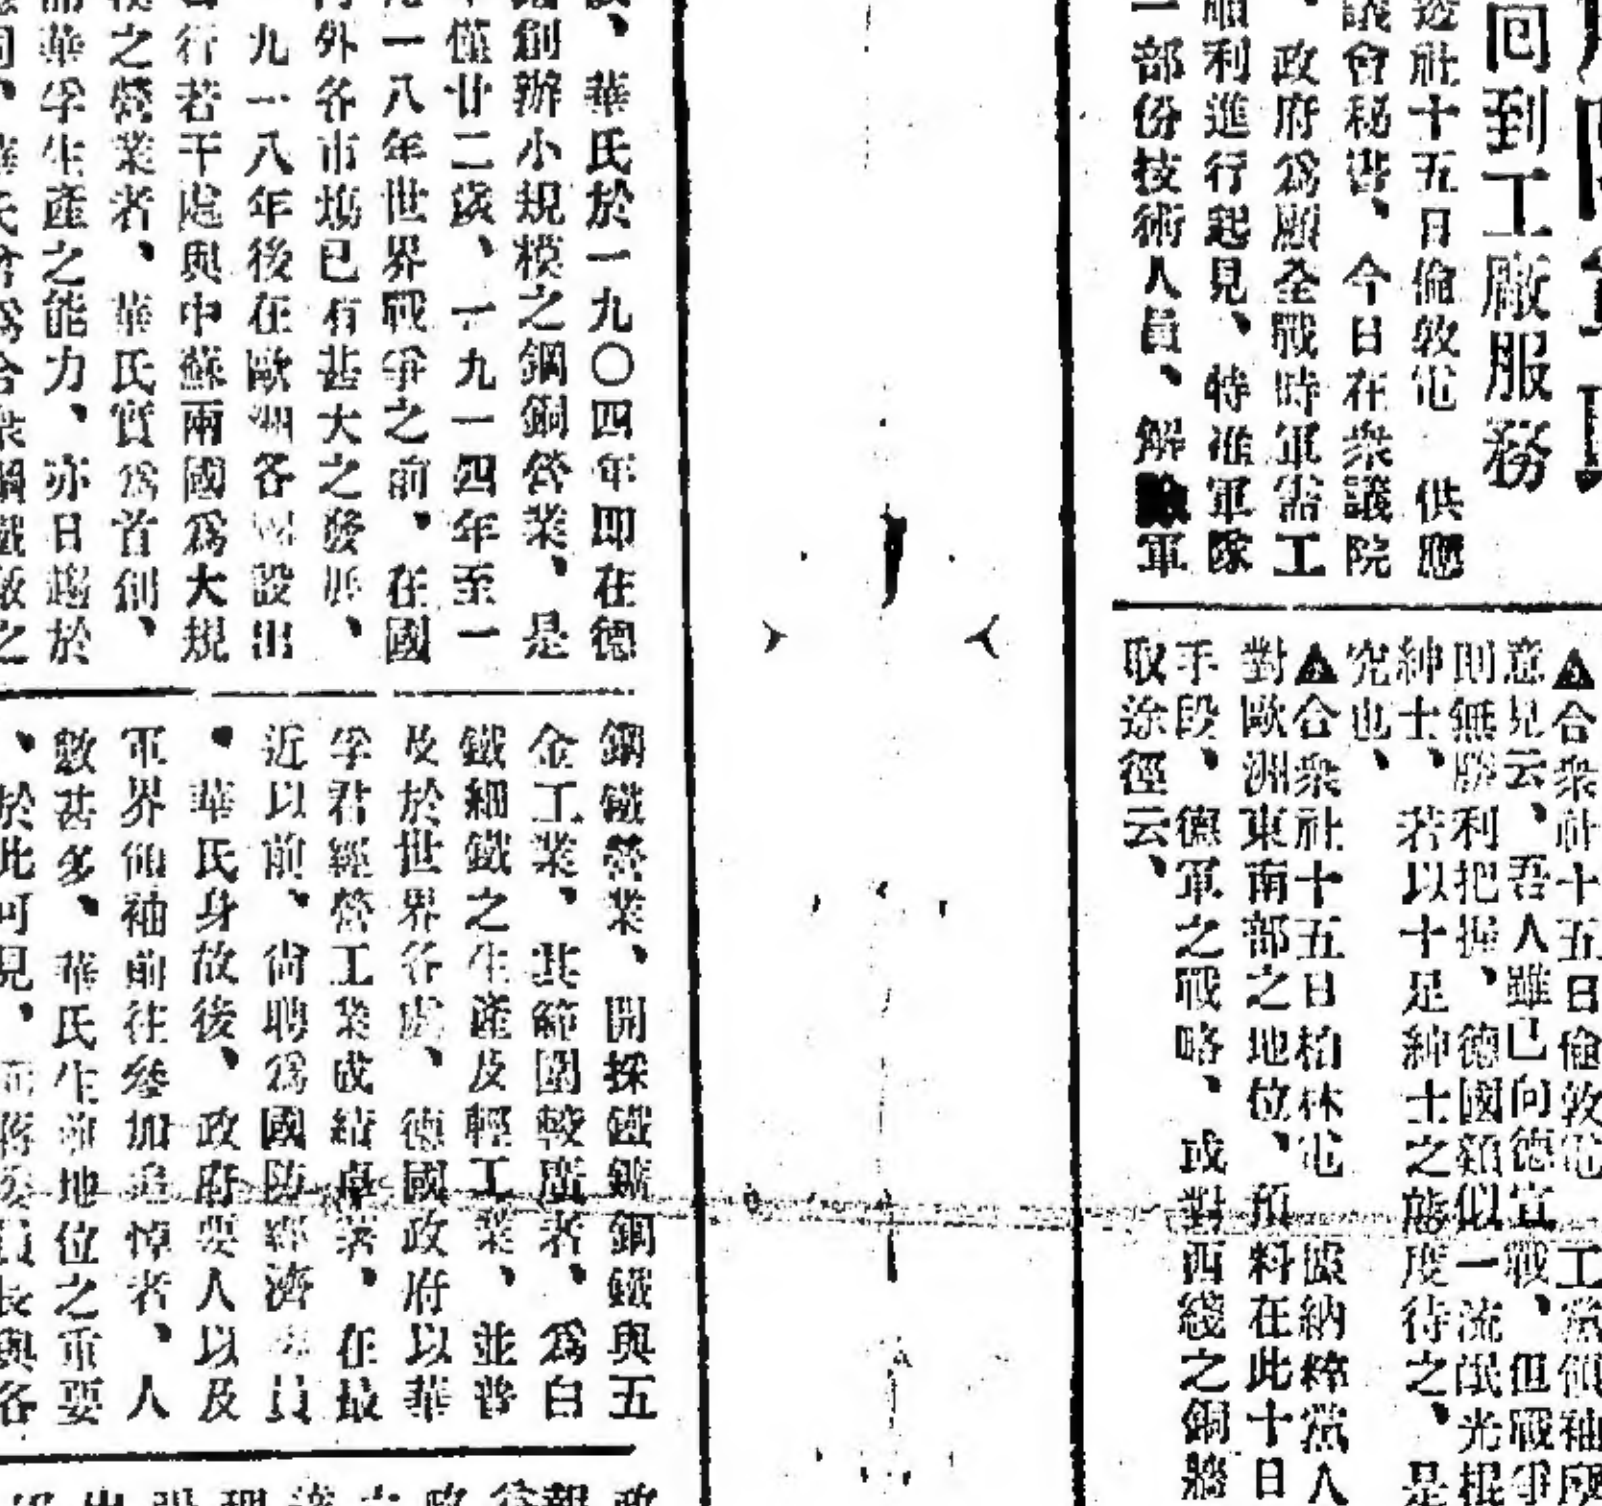 回到工廠服務
透社十五日倫敦電 供應
議會秘書、今日在衆議院
、政府爲顧全戰時軍需工
順利進行起見、特准軍隊
一部份技術人員、解除軍
▲合衆社十五日倫敦電 工黨領袖
意見云、吾人雖已向德宣戰、但戰爭
則無勝利把握、德國類似一流氓光棍
紳士、若以十足紳士之態度待之、是
究也、
▲合衆社十五日柏林電 據納粹黨人
對歐洲東南部之地位、預料在此十日
手段、德軍之戰略、或對西綫之銅牆
取途徑云、
、華氏於一九〇四年即在德
創辦小規模之鋼銅營業、是
年僅廿二歲、一九一四年至一
一八年世界戰爭之前、在國
外各市場已有甚大之發展、
九一八年後在歐洲各國設出
行若干處與中蘇兩國爲大規
模之營業者、華氏實爲首創、
華孚生產之能力、亦日趨於
鋼鐵營業、開採鐵鑛鋼鐵與五
金工業、其範圍較廣者、爲白
鐵細鐵之生產及輕工業、並普
及於世界各處、德國政府以華
孚君經營工業成績卓著、在最
近以前、尚聘爲國防經濟委員
、華氏身故後、政府要人以及
軍界領袖前往參加追悼者、人
數甚多、華氏生前地位之重要
、於此可見、